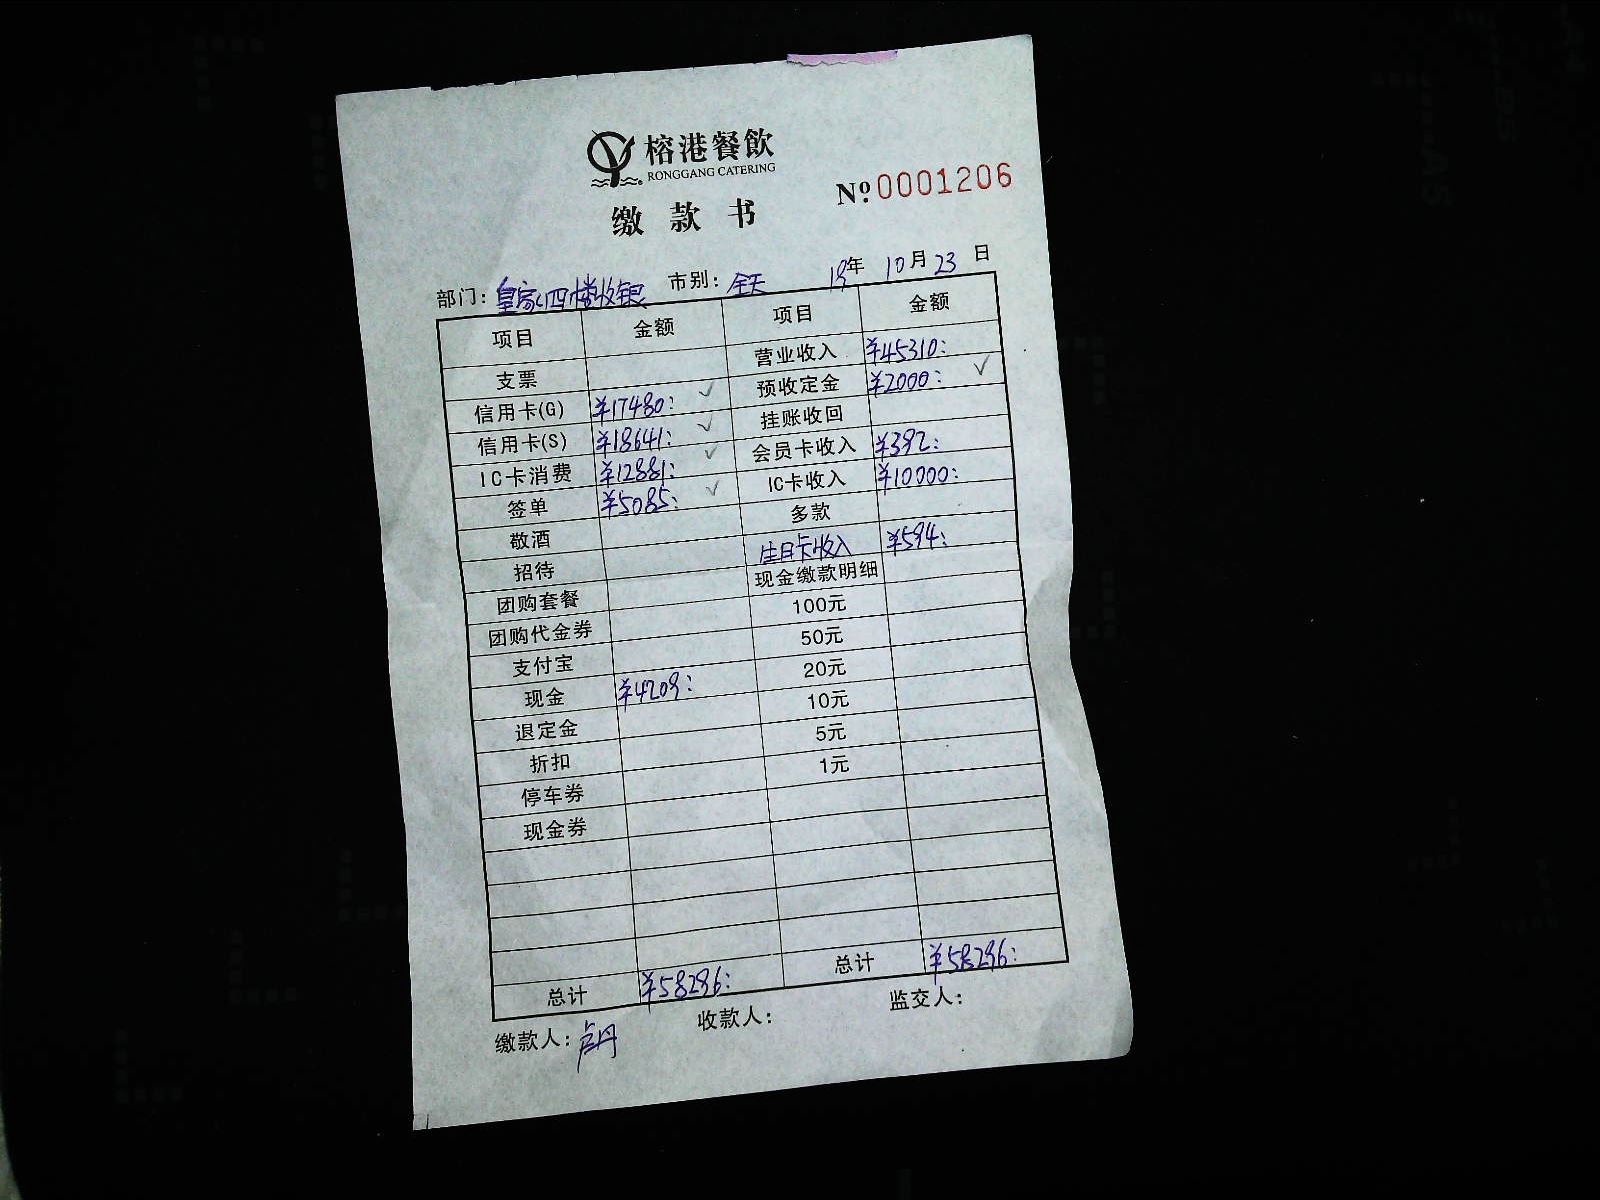 榕港餐飲
RONGGANG CATERING
缴款书
№ 0001206
部门：皇家四楼收银 市别：全天 年 10月 23日
项目 金额 项目 金额
支票 营业收入 ¥45310:
信用卡(G) ¥17480: ✓ 预收定金 ¥2000: ✓
信用卡(S) ¥18641: ✓ 挂账收回
IC卡消费 ¥12881: ✓ 会员卡收入 ¥392:
签单 ¥5085: ✓ IC卡收入 ¥10000:
敬酒 多款
招待 生日卡收入 ¥594:
团购套餐 现金缴款明细
团购代金券 100元
支付宝 50元
现金 ¥4209: 20元
退定金 10元
折扣 5元
停车券 1元
现金券
总计 ¥58296: 总计 ¥58296:
缴款人：卢丹 收款人： 监交人：